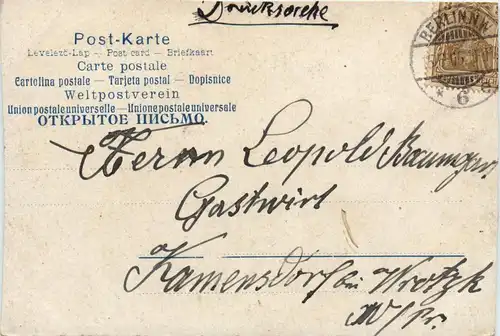 Drucksache
Post-Karte
Levelező-Lap — Post card — Briefkaart
Carte postale
Cartolina postale — Tarjeta postal — Dopisnice
Weltpostverein
Union postale universelle — Unione postale universale
ОТКРЫТОЕ ПИСЬМО.
BERLIN N.W.
* 6
Herrn Leopold
Gastwirt
Kamensdorf bei Wrotzk
W/Pr.